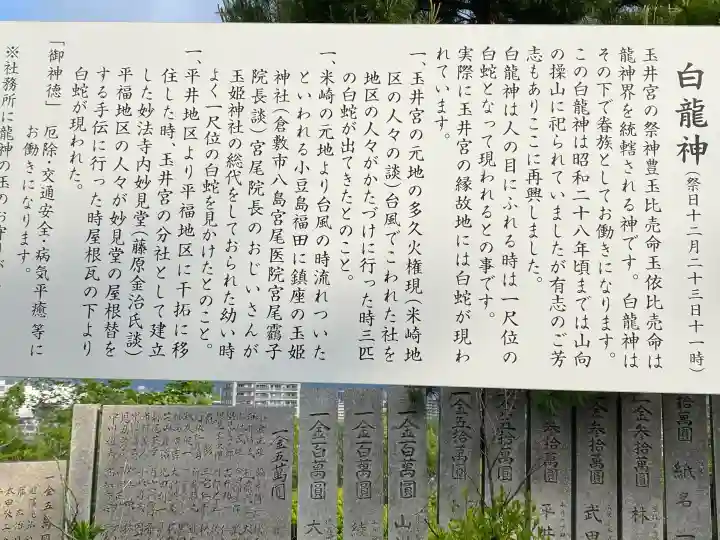 白龍神(祭日十二月二十三日十一時)
玉井宮の祭神豊玉比売命玉依比売命は
龍神界を統轄される神です。白龍神は
その下で眷族としてお働きになります。
この白龍神は昭和二十八年頃までは山向
の操山に祀られていましたが有志のご芳
志もありここに再興しました。
白龍神は人の目にふれる時は一尺位の
白蛇となって現われるとの事です。
実際に玉井宮の縁故地には白蛇が現わ
れています。
一、玉井宮の元地の多久火権現(米崎地
区の人々の談)台風でこわれた社を
地区の人々がかたづけに行った時三匹
の白蛇が出てきたとのこと。
一、米崎の元地より台風の時流れついた
といわれる小豆島福田に鎮座の玉姫
神社(倉敷市八島宮尾医院宮尾靄子
院長談)宮尾院長のおじいさんが
玉姫神社の総代をしておられた幼い時
よく一尺位の白蛇を見かけたとのこと。
一、平井地区より平福地区に干拓に移
住した時、玉井宮の分社として建立
した妙法寺内妙見堂(藤原金治氏談)
平福地区の人々が妙見堂の屋根替を
する手伝に行った時屋根瓦の下より
白蛇が現われた。
「御神徳」 厄除・交通安全・病気平癒等に
お働きになります。
※社務所に龍神の玉のお守りが
拾萬圓 紙名 一
一金参拾萬圓 林
一金参拾萬圓 武田
参拾萬圓 平井
五拾萬圓
一金五拾萬圓
一金百萬圓 山
一金百萬圓 綾
一金百萬圓 大
一金五萬圓
一金五萬円